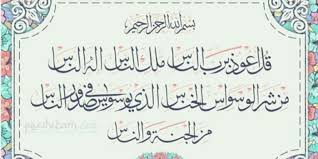 بسم الله الرحمن الرحيم
قل اعوذ برب الناس ملك الناس اله الناس
من شر الوسواس الخناس الذي يوسوس في صدور الناس
من الجنة والناس